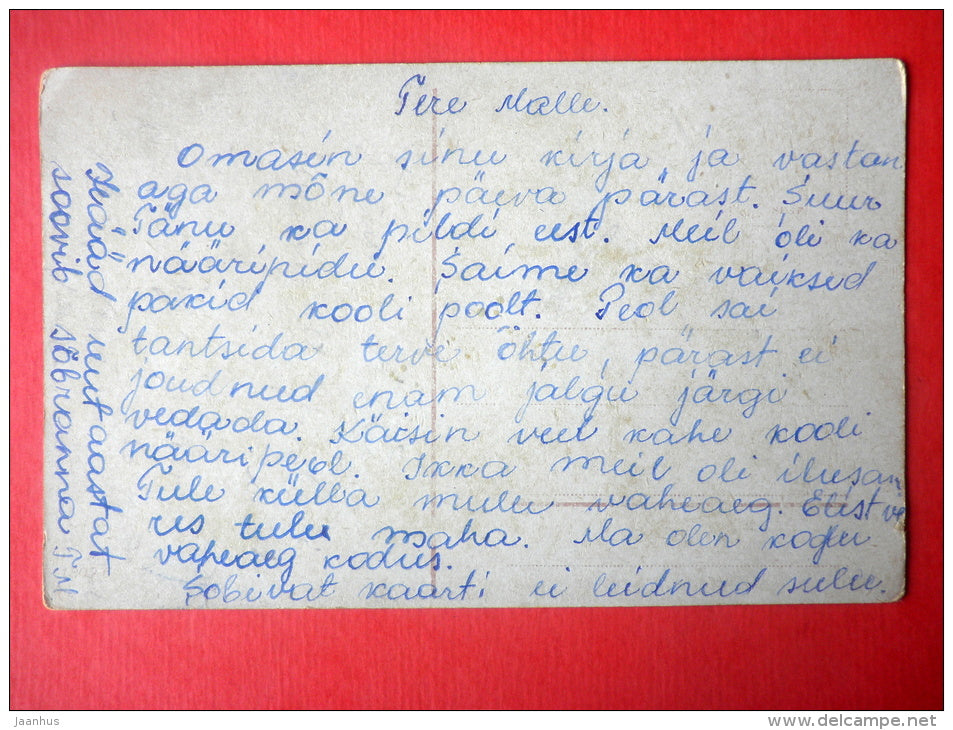 Tere Malle.
Omasin sinu kirja, ja vastan
aga mõne päeva pärast. Suur
Tänu ka pildi eest. Meil oli ka
nääripidu. Saime ka väiksed
pakid kooli poolt. Peol sai
tantsida terve õhtu, pärast ei
joudnud enam jalgu järgi
vedada. Käisin veel kahe kooli
nääripeol. Ikka meil oli ilusam
Tule külla mulle vaheaeg. Elistve
res tulu maha. Ma olen kogu
vaheaeg kodus.
Sobivat kaarti ei leidnud sulle.
Häád uut aastat
soovib sõbranna T.M
Jaanhus
www.delcampe.net